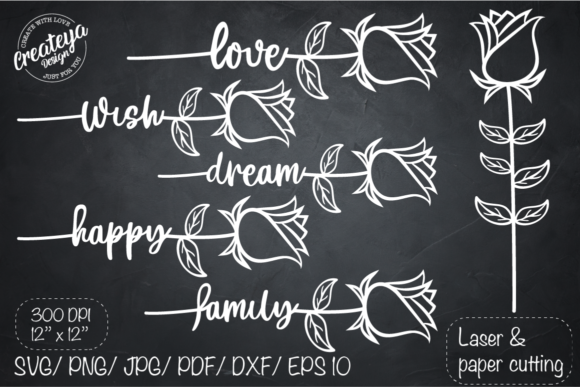 CREATE WITH LOVE
Createya
Design
JUST FOR YOU
love
Wish
dream
happy
family
300 DPI
12" x 12"
SVG/ PNG/ JPG/ PDF/ DXF/ EPS 10
Laser &
paper cutting